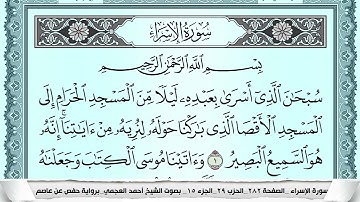 سُورَةُ الإِسْرَاءِ
بِسْمِ اللَّهِ الرَّحْمَٰنِ الرَّحِيمِ
سُبْحَٰنَ الَّذِي أَسْرَىٰ بِعَبْدِهِ لَيْلًا مِّنَ الْمَسْجِدِ الْحَرَامِ إِلَى
الْمَسْجِدِ الْأَقْصَا الَّذِي بَٰرَكْنَا حَوْلَهُ لِنُرِيَهُ مِنْ ءَايَٰتِنَا إِنَّهُ
هُوَ السَّمِيعُ الْبَصِيرُ ١ وَءَاتَيْنَا مُوسَى الْكِتَٰبَ وَجَعَلْنَٰهُ
سورة الإسراء_ الصفحة ٢٨٢_ الحزب ٢٩_ الجزء ١٥_ بصوت الشيخ أحمد العجمي_ برواية حفص عن عاصم